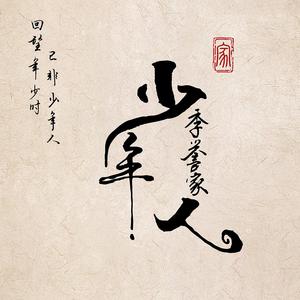 回望年少时
已非少年人
少年人
季誉家
家